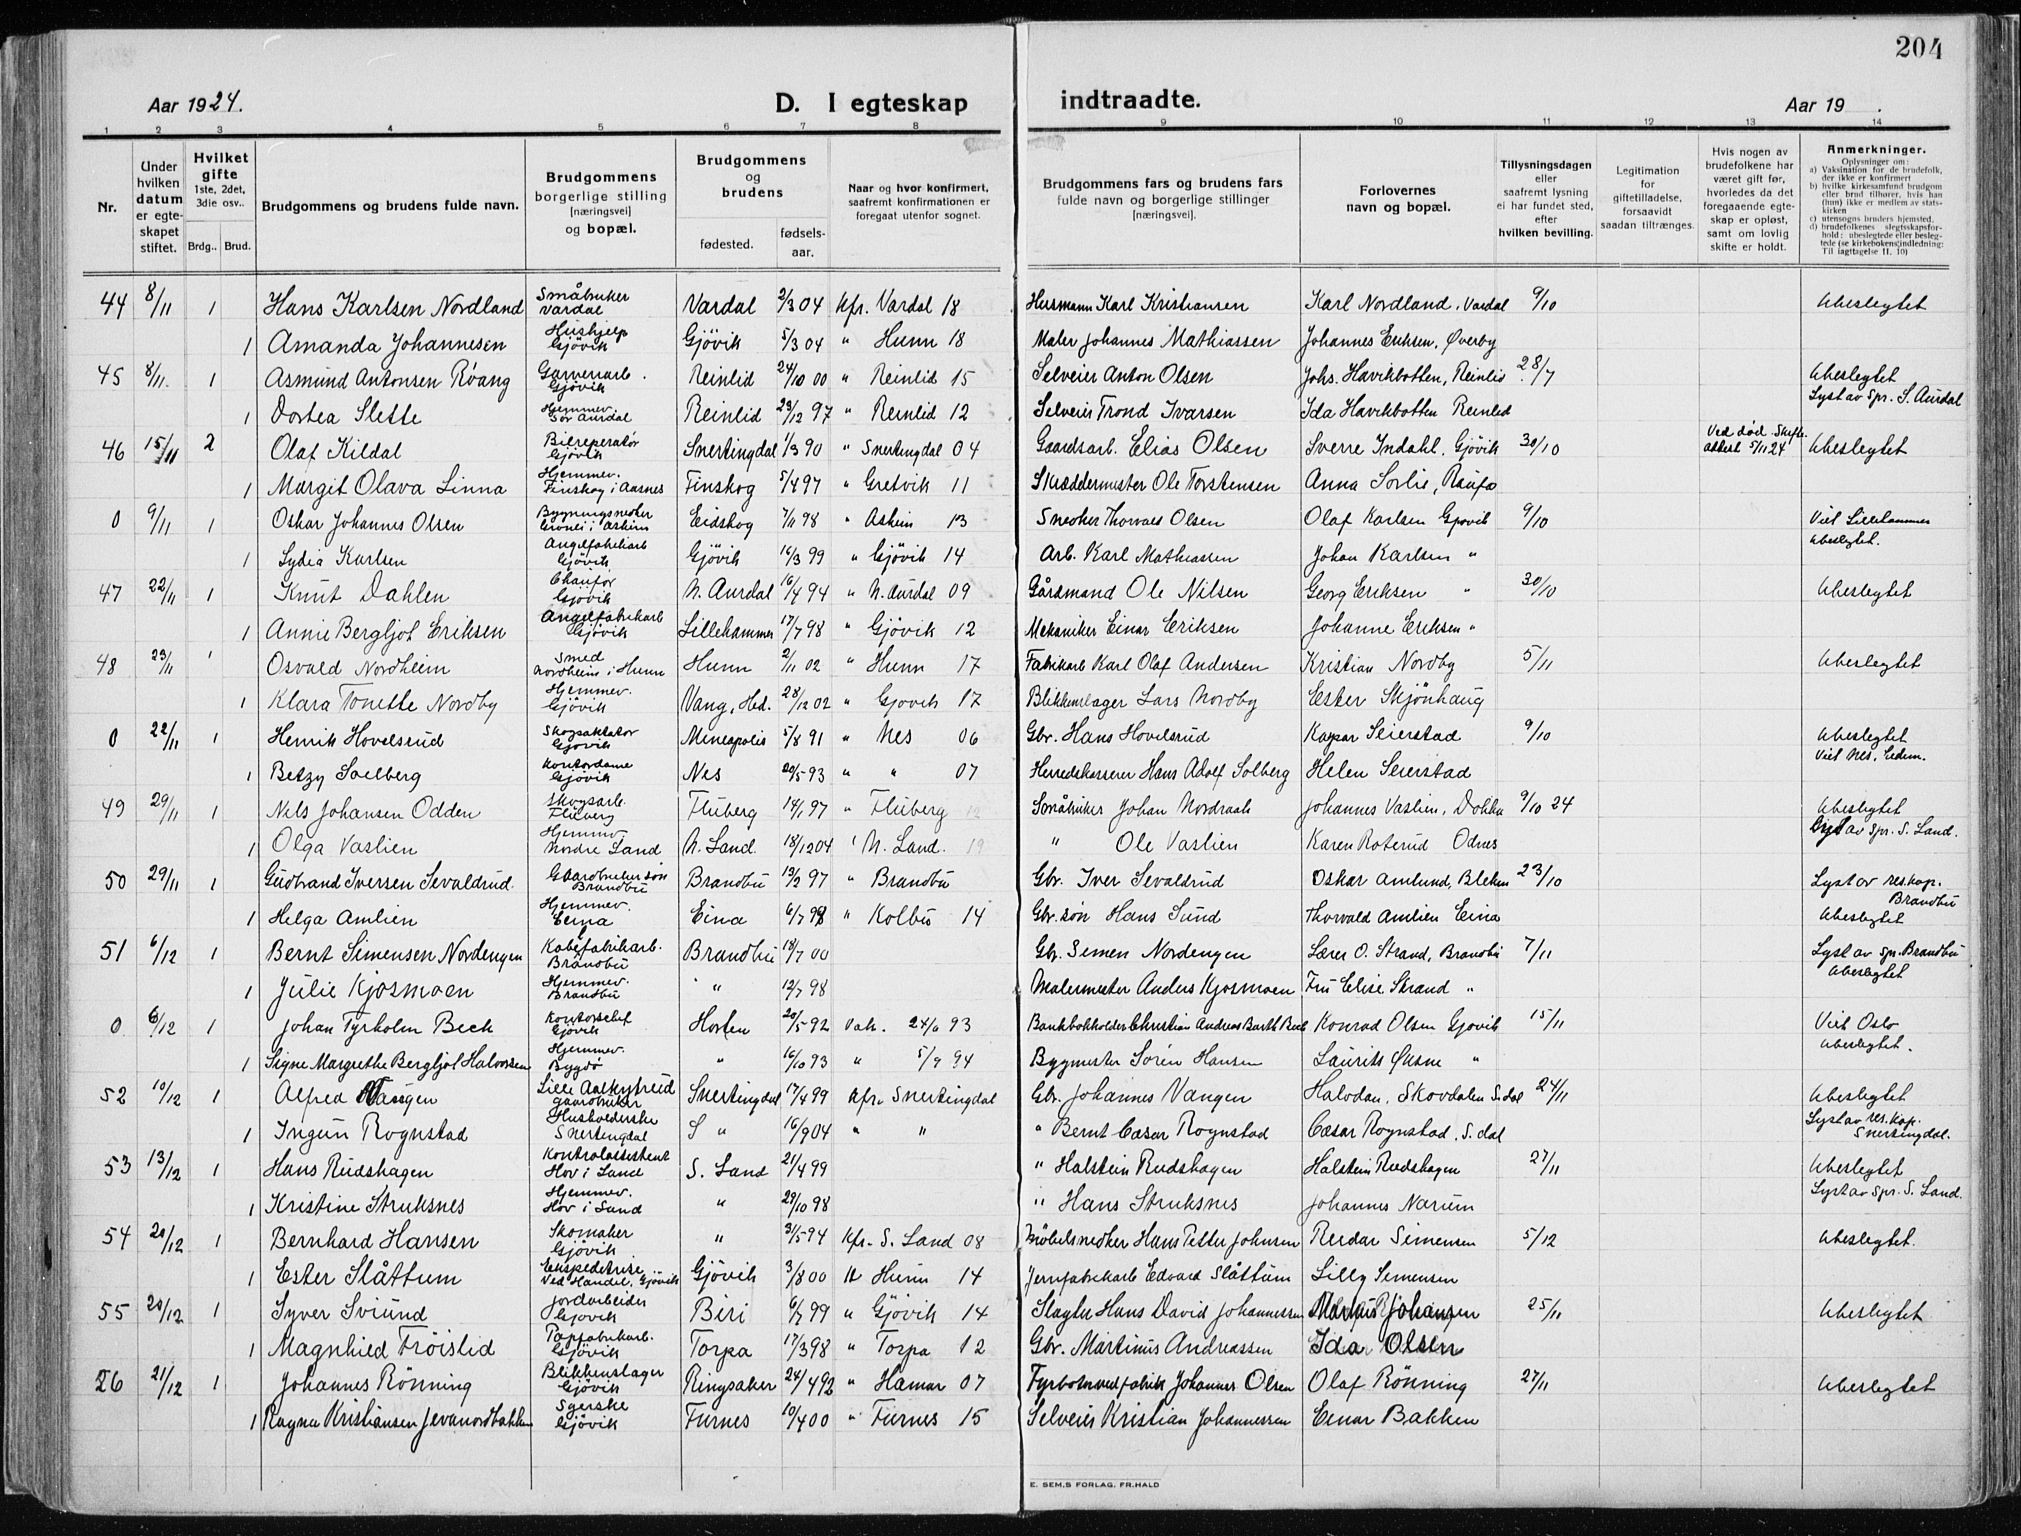 204
Aar 1924.
D. I egteskap indtraadte.
Aar 19 .
1 2 3 4 5 6 7 8 9 10 11 12 13 14
Nr.
Under hvilken datum er egteskapet stiftet.
Hvilket gifte 1ste, 2det, 3die osv..
Brdg.. Brud.
Brudgommens og brudens fulde navn.
Brudgommens borgerlige stilling [næringsvei] og bopæl.
Brudgommens og brudens
fødested.
fødselsaar.
Naar og hvor konfirmert, saafremt konfirmationen er foregaat utenfor sognet.
Brudgommens fars og brudens fars fulde navn og borgerlige stillinger [næringsvei].
Forlovernes navn og bopæl.
Tillysningsdagen eller saafremt lysning ei har fundet sted, efter hvilken bevilling.
Legitimation for giftetilladelse, forsaavidt saadan tiltrænges.
Hvis nogen av brudefolkene har været gift før, hvorledes da det foregaaende egteskap er opløst, samt om lovlig skifte er holdt.
Anmerkninger.
Oplysninger om:
a) Vaksination for de brudefolk, der ikke er konfirmert
b) hvilke kirkesamfund brudgom eller brud tilhører, hvis han (hun) ikke er medlem av statskirken
c) utensogns bruders hjemsted.
d) brudefolkenes slegtsskapsforhold: ubeslegtede eller beslegtede (se kirkebokens indledning: Til iagttagelse 11, 10)
44 8/11 1 Hans Karlsen Nordland Småbruker Vardal Vardal 2/3 04 kfr. Vardal 18 Husmann Karl Kristiansen Karl Nordland, Vardal 9/10 Ubeslegtet
1 Amanda Johannesen Hushjelp Gjövik Gjövik 5/3 04 " Hunn 18 Maler Johannes Mathiassen Johannes Eriksen, Øverby
45 8/11. 1 Asmund Antonsen Röang Garveriarb. Gjövik Reinlid 24/10 00 " Reinlid 15 Selveier Anton Olsen Johs. Havikbotten, Reinlid 28/7 Ubeslegtet
1 Dortea Slette Hjemmev. Sör Aurdal Reinlid 23/12 97 " Reinlid 12 Selveier Trond Ivarsen Ida Havikbotten Reinlid Lyst av Spr. S. Aurdal
46 15/11 2 Olaf Kildal Bilreperatör Gjövik Snertingdal 1/3 90 " Snertingdal 04 Gaardsarb. Elias Olsen Sverre Indahl, Gjövik 30/10 Ved död. Skifte attest 5/11 24 Ubeslegtet
1 Margit Olava Linna Hjemmev. Finskog i Aasnes Finskog 5/4 97 " Gretvik 11 Skræddermester Ole Torstensen Anna Sörlie, Raufo
0 9/11 1 Oskar Johannes Olsen Bygningsnedker i Askim Eidskog 7/11 98 " Askim 13 Snedker Thorvald Olsen Olaf Karlsen Gjövik 9/10 Viet Lillehammer Ubeslegtet.
1 Lydia Karlsen Angelfabrikarb Gjövik Gjövik 16/3 99 " Gjövik 14 Arb. Karl Mathiassen Johan Karlsen "
47 22/11 1 Knut Dahlen Chauför Gjövik N. Aurdal 16/4 94 " N. Aurdal 09 Gårdmand Ole Nilsen Georg Eriksen " 30/10 Ubeslegtet
1 Annie Bergljot Eriksen Angelfabrikarb Gjövik Lillehammer 17/7 98 " Gjövik 12 Mekaniker Einar Eriksen Johanne Eriksen "
48 23/11 1 Osvald Nordheim Smed Nordheim i Hunn Hunn 2/11 02 " Hunn 17 Fabrikarb Karl Olaf Andersen Kristian Nordby 5/11 Ubeslegtet
1 Klara Tonette Nordby Hjemmev. Gjövik Vang, Hed. 28/12 02 " Gjövik 17 Blikkenslager Lars Nordby Ester Skjönhaug
0 22/11 1 Henrik Hovelsrud Skogsaktatör Gjövik Mineapolis 5/8 91 " Nes 06 Gbr. Hans Hovelsrud Kaspar Seierstad 9/10 Ubeslegtet Viet Nes, Hedm.
1 Betzy Solberg Kontordame Gjövik Nes 20/5 93 " " 07 Herredskasserer Hans Adolf Solberg Helen Seierstad
49 29/11 1 Nils Johansen Odden Skogsarb. Fluberg Fluberg 14/1 97 " Fluberg 12 Småbruker Johan Nordraak Johannes Vaslien, Dokka 9/10 24 Ubeslegtet
1 Olga Vaslien Hjemmev Nordre Land N. Land. 18/12 04 " N. Land. 19 " Ole Vaslien Karen Roterud Odnes Lyst av Spr. S. Land.
50 29/11 1 Gudbrand Iversen Sevaldrud. Gaardbrukersön Brandbu Brandbu 13/2 97 " Brandbu Gbr. Iver Sevaldrud Oskar Amlund, Bleken 23/10 Lyst av res.kap. Brandbu
1 Helga Amlien Hjemmev. Eina Eina 6/7 98 " Kolbu 14 Gbr. sön Hans Sund Thorvald Amlien Eina Ubeslegtet
51 6/12 1 Bernt Simensen Nordengen Brandbu Brandbu 13/7 00 Gbr. Semen Nordengen Lærer O. Strand, Brandbu 7/11 Lyst av spr. Brandbu Ubeslegtet
1 Julie Kjosmoen Hjemmev. Brandbu " 12/7 98 Malermester Anders Kjosmoen Fru Elise Strand "
0 6/12 1 Johan Tyrholm Beck Kontorchef Gjövik Horten 20/5 92 Vak. 24/6 93 Bankbokholder Christian Andreas Barth Beck Konrad Olsen Gjövik 15/11 Viet Oslo Ubeslegtet.
1 Signe Margrethe Bergljot Halvorsen Hjemmev. Bygdö " 16/10 93 " 5/9 94 Bygmester Sören Hansen Laurits Öksne "
52 10/12 1 Alfred Vangen Lille Aalkystrud gaardbruker Snertingdal 17/4 99 kfr. Snertingdal Gbr. Johannes Vangen Halvdan, Skovdalen S.dal 24/11 Ubeslegtet
1 Ingun Rognstad Husholderske Snertingdal S " 16/9 04 " " " Bernt Cæsar Rognstad Cæsar Rognstad, S. dal Lyst av res.kap. Snertingdal.
53 13/12 1 Hans Rudshagen Kontrolassistent Hov i Land S. Land 21/4 99 " Halstein Rudshagen Halstein Rudshagen 27/11 Ubeslegtet
1 Kristine Struksnes Hjemmev. Hov i Land " 29/10 98 " Hans Struksnes Johannes Narum Lyst av Spr. S. Land.
54 20/12 1 Bernhard Hansen Skomaker Gjövik " 3/5 94 kfr. S. Land 08 Möbelsnedker Hans Petter Johnsen Reidar Simensen 5/12 Ubeslegtet.
1 Ester Slåttum Ekspeditrise ved Handel, Gjövik Gjövik 3/8 00 " Hunn 14 Jernfabrikarb Edvard Slåttum Lilly Semensen
55 20/12 1 Syver Sviund Jordarbeider Gjövik Biri 6/7 99 " Gjövik 14 Slagter Hans David Johannessen Markus Johansen 25/11 Ubeslegtet
1 Magnhild Fröislid Papfabrikarb. Gjövik Torpa 17/3 98 " Torpa 12 Gbr. Martinus Andreassen Ida Olsen
56 21/12 1 Johannes Rönning Blikkenslager Gjövik Ringsaker 24/4 92 " Hamar 07 Fyrböter ved fabrik Johannes Olsen Olaf Rönning 27/11 Ubeslegtet
1 Ragna Kristiansen Jevanordbakken Sgerske Gjövik Furnes 10/4 00 " Furnes 15 Selveier Kristian Johannessen Einar Bakken
E. SEM,S FORLAG, FR.HALD